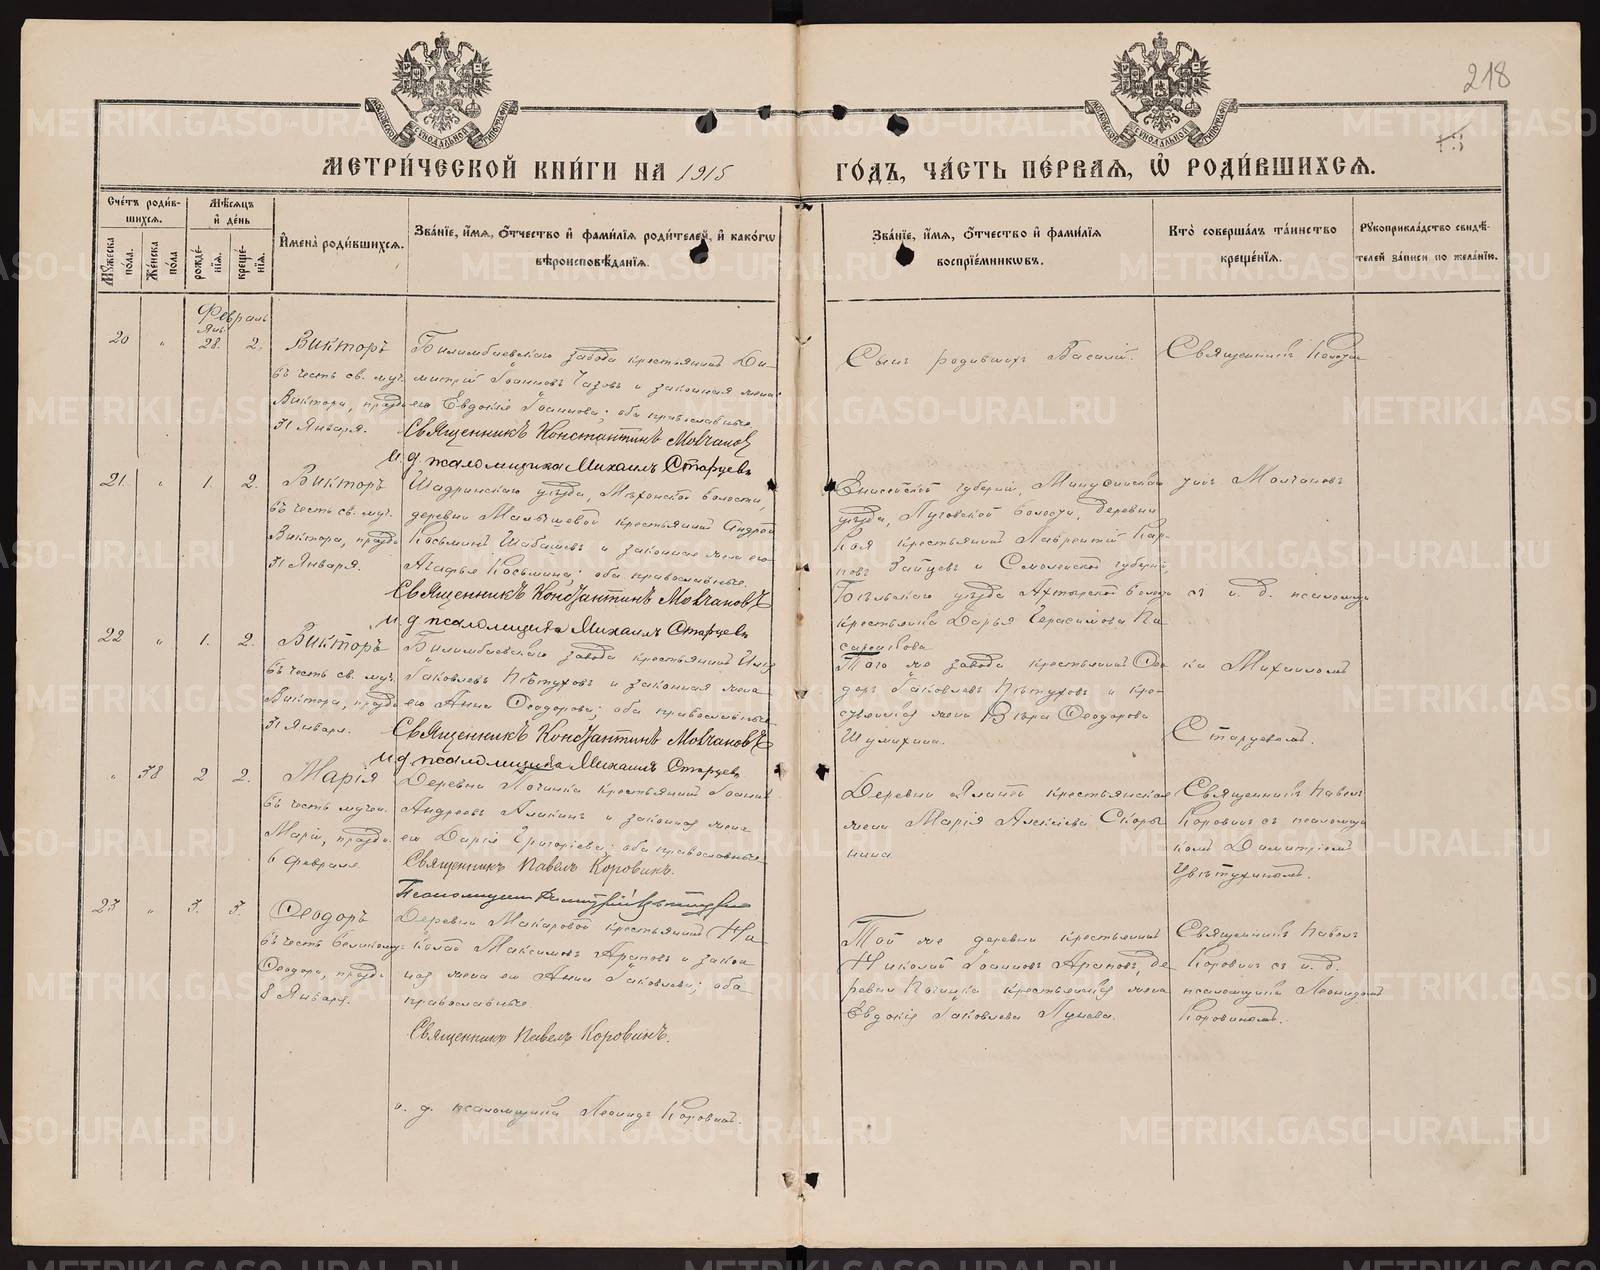 218
МЕТРИ́ЧЕСКОЙ КНИ́ГИ НА 1915 ГО́ДЪ, ЧА́СТЬ ПЕ́РВАЯ, Ѡ҆ РОДИ́ВШИХСЯ.
Сче́тъ роди́в-
шихся.
Мѣ́сяцъ
и҆ де́нь
Му́жеска по́ла.
Же́нска по́ла
рожде́-
нїя.
креще́-
нїя.
И҆мена̀ роди́вшихся.
Зва́нїе, и҆́мя, ѻ҆́тчество и҆ фами́лїя роди́телей, и҆ како́гѡ
вѣроисповѣ́данїя.
Зва́нїе, и҆́мя, ѻ҆́тчество и҆ фами́лїя
воспрїе́мникѡвъ.
Кто̀ соверша́лъ та́инство
креще́нїя.
Рꙋкоприкла́дство свидѣ́-
телей за́писи по жела́нїю.
Февраль
20 " Янв. 28. 2. Викторъ
въ честь св. муч.
Виктора, празд.
31 Января.
Билимбаевскаго завода крестьянинъ Ди-
митрій Іоанновъ Чазовъ и законная жена
его Евдокія Іоаннова; оба православные.
Священникъ Константинъ Молчановъ
И. д. псаломщика Михаилъ Старцевъ
Сынъ родившихъ Василій.
Священникъ Констан-
21. " 1. 2. Викторъ
въ честь св. муч.
Виктора, празд.
31 Января.
Шадринскаго уѣзда, Мѣхонской волости,
деревни Малышевой крестьянинъ Андрей
Косьминъ Шабашевъ и законная жена его
Агафья Косьмина; оба православные.
Священникъ Константинъ Молчановъ
И. д. псаломщика Михаилъ Старцевъ
Енисейской губерніи, Минусинскаго
уѣзда, волости, деревни
крестьянинъ Лаврентій Кар-
повъ Зайцевъ и Смоленской губерніи,
Бѣльскаго уѣзда волости
крестьянка Дарья Герасимова
тинъ Молчановъ
съ и. д. псаломщи-
22 " 1. 2. Викторъ
въ честь св. муч.
Виктора, празд.
31 Января.
Билимбаевскаго завода крестьянинъ
Іаковлевъ Пѣтуховъ и законная жена
его Анна Ѳеодорова; оба православные
Священникъ Константинъ Молчановъ
И. д. псаломщика Михаилъ Старцевъ
Того же завода крестьянинъ Ѳео-
доръ Іаковлевъ Пѣтуховъ и кре-
стьянская жена Вѣра Ѳеодорова
Шумихина.
ка Михаиломъ
Старцевымъ.
" 38 2 2. Марія
въ честь мучен.
Маріи, празд.
6 февраля.
Деревни Починка крестьянинъ Іоаннъ
Андреевъ Алакинъ и законная жена
его Дарія Григоріева; оба православные.
Священникъ Павелъ Коровинъ.
Псаломщикъ Димитрій Цвѣтухинъ
Деревни крестьянская
жена Марія Алексіева Скоры-
нина
Священникъ Павелъ
Коровинъ съ псаломщи-
комъ Димитріемъ
Цвѣтухинымъ.
23 " 3. 3. Ѳеодоръ
въ честь великому.
Ѳеодора, празд.
8 Января.
Деревни Макаровой крестьянинъ Ни-
колай Максимовъ Араповъ и закон-
ная жена его Анна Іаковлева; оба
православные
Священникъ Павелъ Коровинъ.
и. д. псаломщика Леонидъ Коровинъ.
Той же деревни крестьянинъ
Николай Іоанновъ Араповъ, де-
ревни Починка крестьянская жена
Евдокія Іаковлева Пунева.
Священникъ Павелъ
Коровинъ съ и. д.
псаломщика Леонидомъ
Коровинымъ.
METRIKI.GASO-URAL.RU